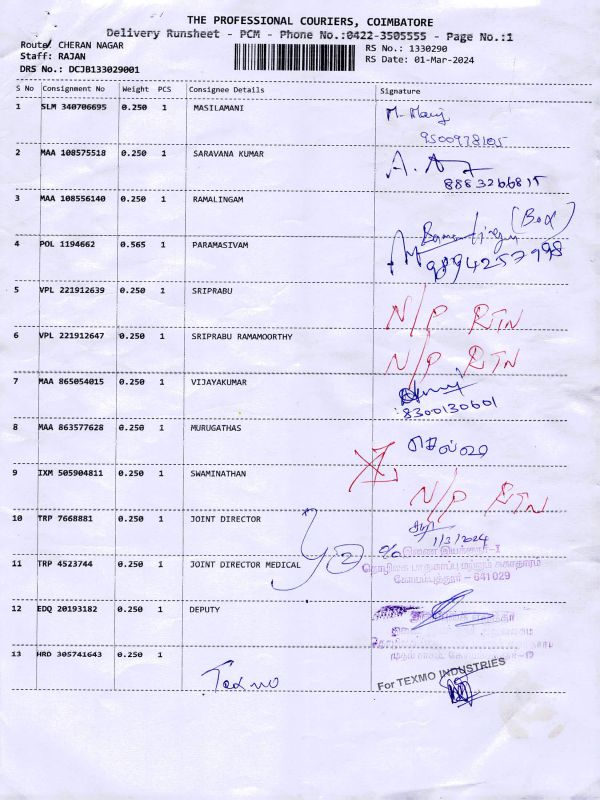 THE PROFESSIONAL COURIERS, COIMBATORE
Delivery Runsheet - PCM - Phone No.:0422-3505555 - Page No.:1
Route: CHERAN NAGAR
RS No.: 1330290
Staff: RAJAN
RS Date: 01-Mar-2024
DRS No.: DCJB133029001
S No Consignment No Weight PCS Consignee Details Signature
1 SLM 340706695 0.250 1 MASILAMANI
9500978105
2 MAA 108575518 0.250 1 SARAVANA KUMAR
8883266815
3 MAA 108556140 0.250 1 RAMALINGAM
(Box)
4 POL 1194662 0.565 1 PARAMASIVAM
9894257998
5 VPL 221912639 0.250 1 SRIPRABU N/P RTN
6 VPL 221912647 0.250 1 SRIPRABU RAMAMOORTHY N/P RTN
7 MAA 865054015 0.250 1 VIJAYAKUMAR
8300130601
8 MAA 863577628 0.250 1 MURUGATHAS
9 IXM 505904811 0.250 1 SWAMINATHAN N/P RTN
10 TRP 7668881 0.250 1 JOINT DIRECTOR
1/3/2024
இணை இயக்குநர்-I
11 TRP 4523744 0.250 1 JOINT DIRECTOR MEDICAL
தொழிலக பாதுகாப்பு மற்றும் சுகாதாரம்
கோயம்புத்தூர் - 641 029
12 EDQ 20193182 0.250 1 DEPUTY
13 HRD 305741643 0.250 1
Texmo
For TEXMO INDUSTRIES